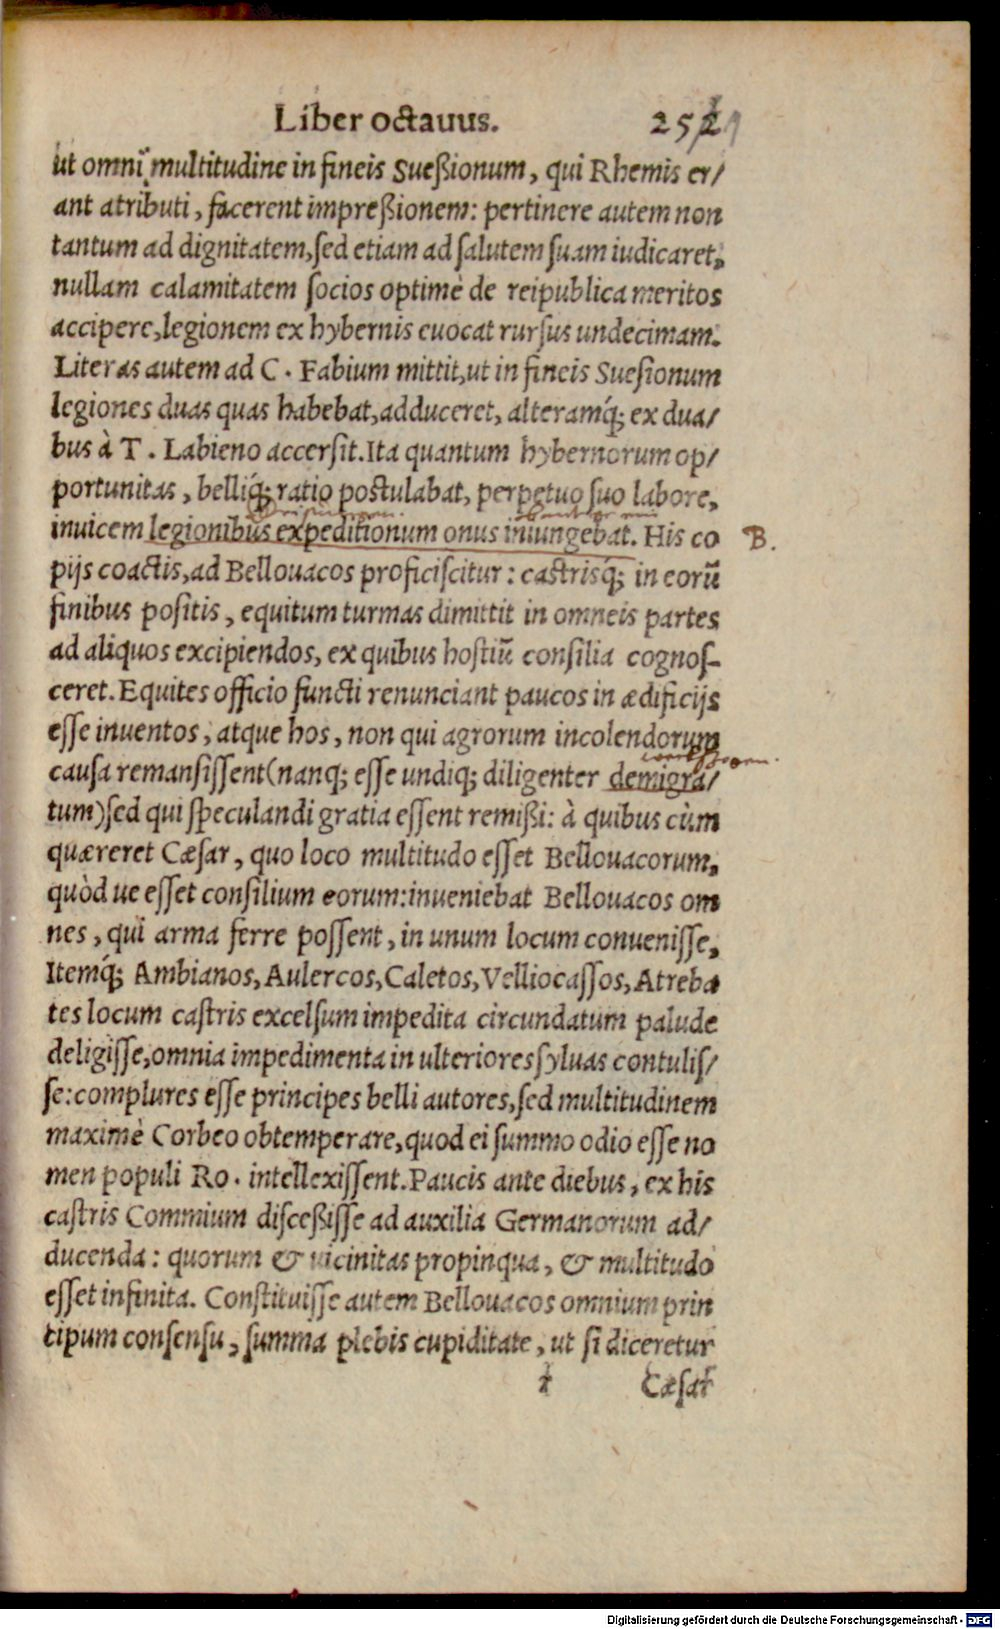 Liber octavus. 252
ut omni multitudine in fineis Sueßionum, qui Rhemis er/
ant atributi, facerent impreßionem: pertinere autem non
tantum ad dignitatem, sed etiam ad salutem suam iudicaret,
nullam calamitatem socios optimè de reipublica meritos
accipere, legionem ex hybernis euocat rursus undecimam.
Literas autem ad C. Fabium mittit, ut in fineis Suesionum
legiones duas quas habebat, adduceret, alteramq́; ex dua/
bus à T. Labieno accersit. Ita quantum hybernorum op/
portunitas, belliq́; ratio postulabat, perpetuo suo labore,
inuicem legionibus expeditionum onus iniungebat. His co
B.
pijs coactis, ad Bellouacos proficiscitur: castrisq́; in eorũ
finibus positis, equitum turmas dimittit in omneis partes
ad aliquos excipiendos, ex quibus hostiũ consilia cognos-
ceret. Equites officio functi renunciant paucos in ædificijs
esse inuentos, atque hos, non qui agrorum incolendorum
causa remansissent(nanq; esse undiq; diligenter demigra/
tum)sed qui speculandi gratia essent remißi: à quibus cùm
quæreret Cæsar, quo loco multitudo esset Bellouacorum,
quòd ue esset consilium eorum: inueniebat Bellouacos om
nes, qui arma ferre possent, in unum locum conuenisse,
Itemq́; Ambianos, Aulercos, Caletos, Velliocassos, Atreba
tes locum castris excelsum impedita circundatum palude
deligisse, omnia impedimenta in ulteriores syluas contulis/
se: complures esse principes belli autores, sed multitudinem
maximè Corbeo obtemperare, quod ei summo odio esse no
men populi Ro. intellexissent. Paucis ante diebus, ex his
castris Commium disceßisse ad auxilia Germanorum ad/
ducenda: quorum & uicinitas propinqua, & multitudo
esset infinita. Constituisse autem Bellouacos omnium prin
cipum consensu, summa plebis cupiditate, ut si diceretur
Cæsar
Digitalisierung gefördert durch die Deutsche Forschungsgemeinschaft - DFG